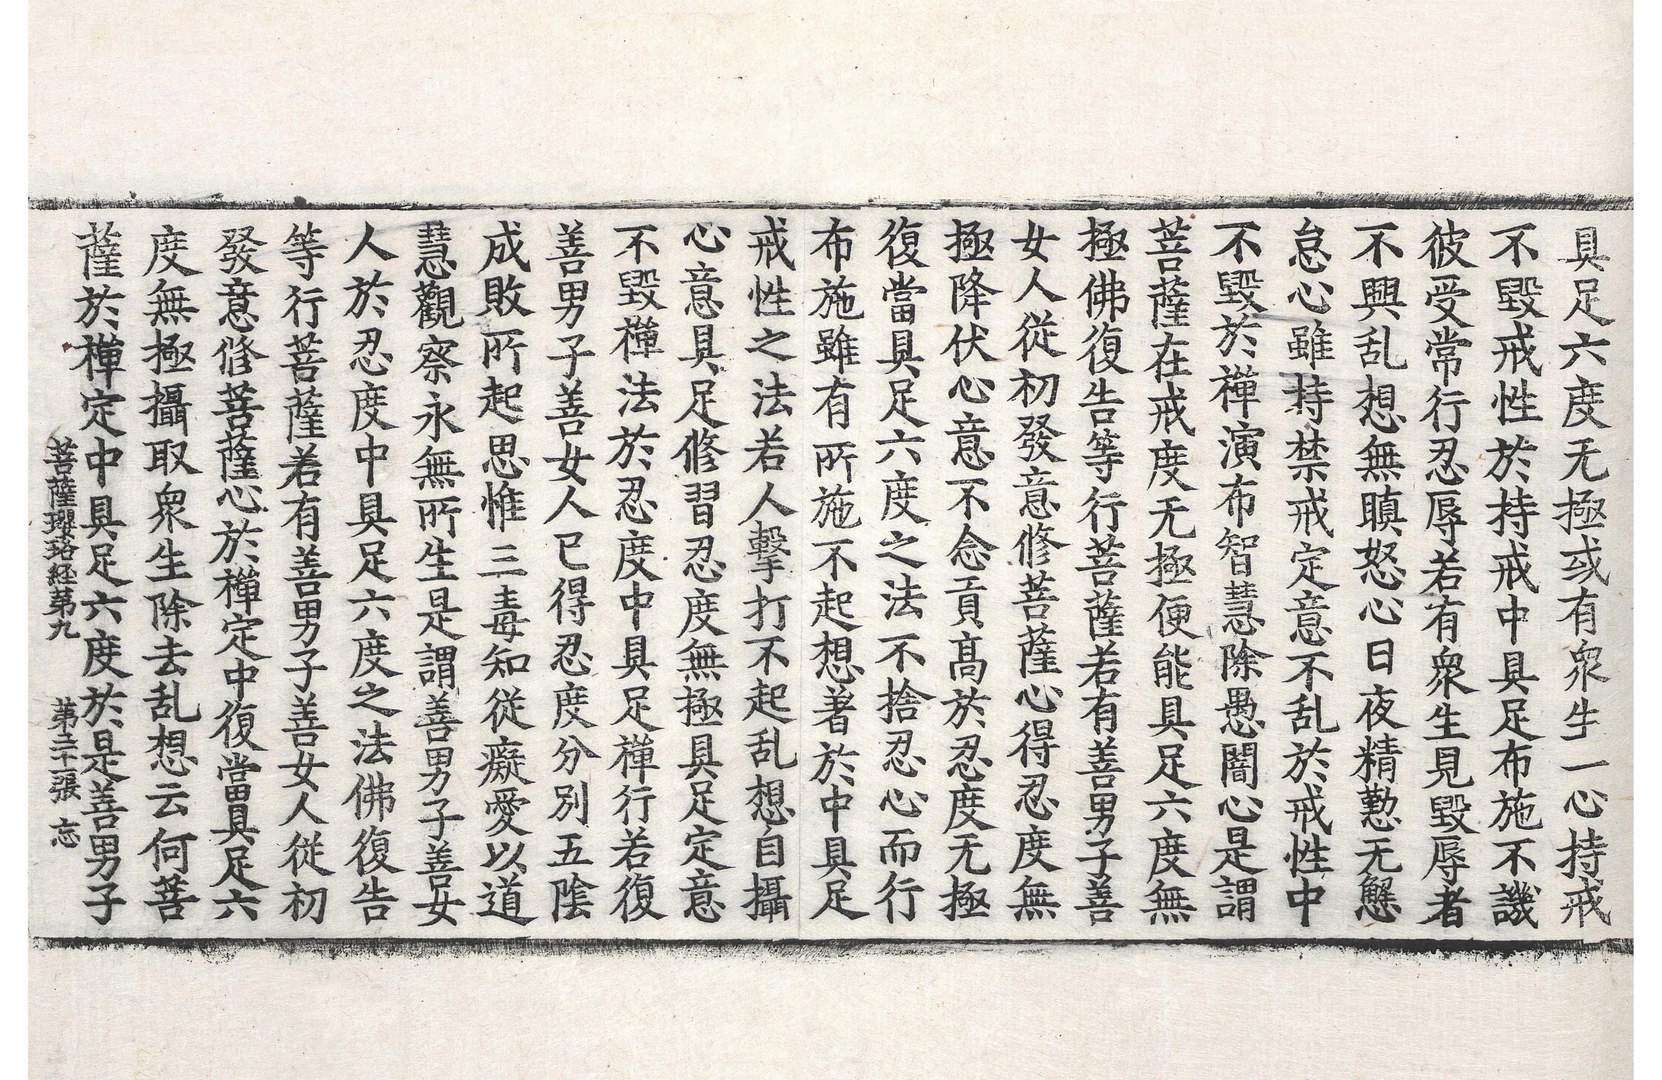 具足六度无極或有衆生一心持戒
不毀戒性於持戒中具足布施不譏
彼受常行忍辱若有衆生見毀辱者
不興乱想無瞋怒心日夜精懃无懈
怠心雖持禁戒定意不乱於戒性中
不毀於禪演布智慧除愚闇心是謂
菩薩在戒度无極便能具足六度無
極佛復告等行菩薩若有善男子善
女人從初發意修菩薩心得忍度無
極降伏心意不念貢高於忍度无極
復當具足六度之法不捨忍心而行
布施雖有所施不起想著於中具足
戒性之法若人擊打不起乱想自攝
心意具足修習忍度無極具足定意
不毀禪法於忍度中具足禪行若復
善男子善女人已得忍度分別五陰
成敗所起思惟三毒知從癡愛以道
慧觀察永無所生是謂善男子善女
人於忍度中具足六度之法佛復告
等行菩薩若有善男子善女人從初
發意修菩薩心於禪定中復當具足六
度無極攝取衆生除去乱想云何菩
薩於禪定中具足六度於是善男子
菩薩瓔珞経第九 第二十一張 忘